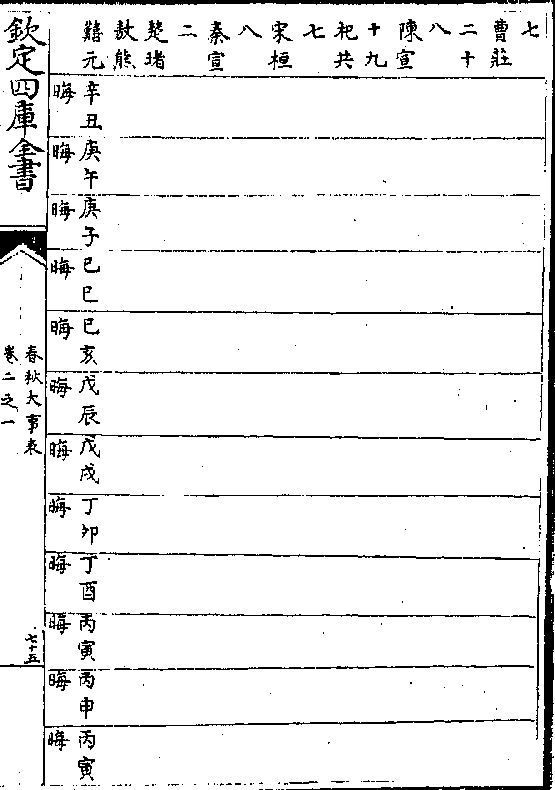 七
曹莊
二十
八
陳宣
十九
杞共
七
宋桓
八
秦宣
二
楚堵
敖熊
囏元
辛丑
晦
庚午
晦
庚子
晦
己巳
晦
己亥
晦
戊辰
晦
戊戌
晦
丁卯
晦
丁酉
晦
丙寅
晦
丙申
晦
丙寅
晦
欽定四庫全書
春秋大事表
卷二之一
七十五